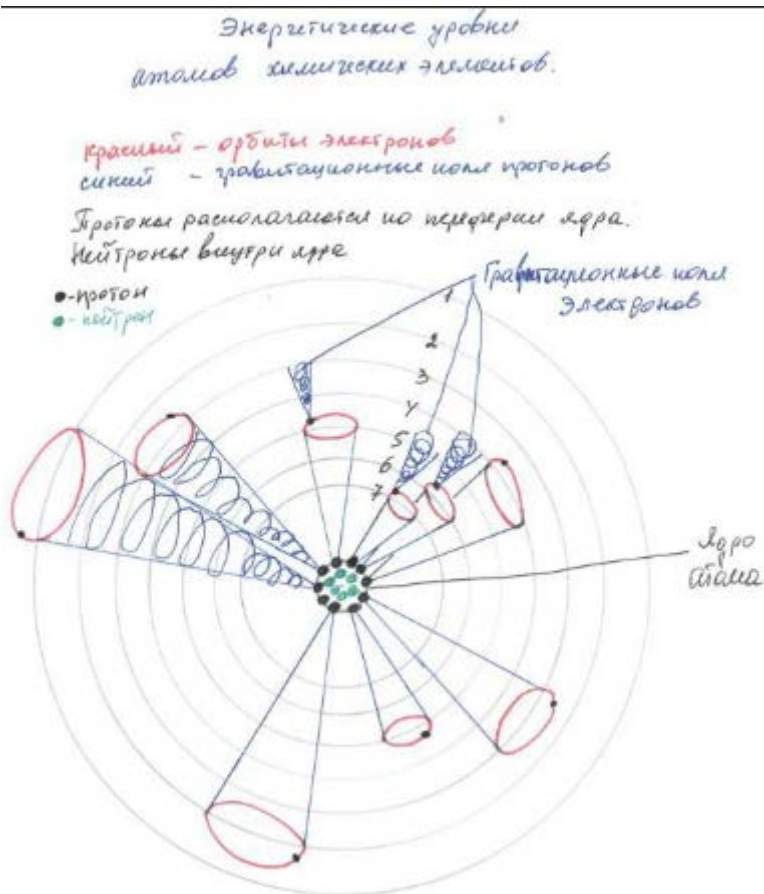 Энергетические уровни
атомов химических элементов.
красный - орбиты электронов
синий - гравитационные поля протонов
Протоны располагаются по периферии ядра.
Нейтроны внутри ядра
-протон
- нейтрон
Гравитационные поля
электронов
1
2
3
4
5
6
7
Ядро
атома